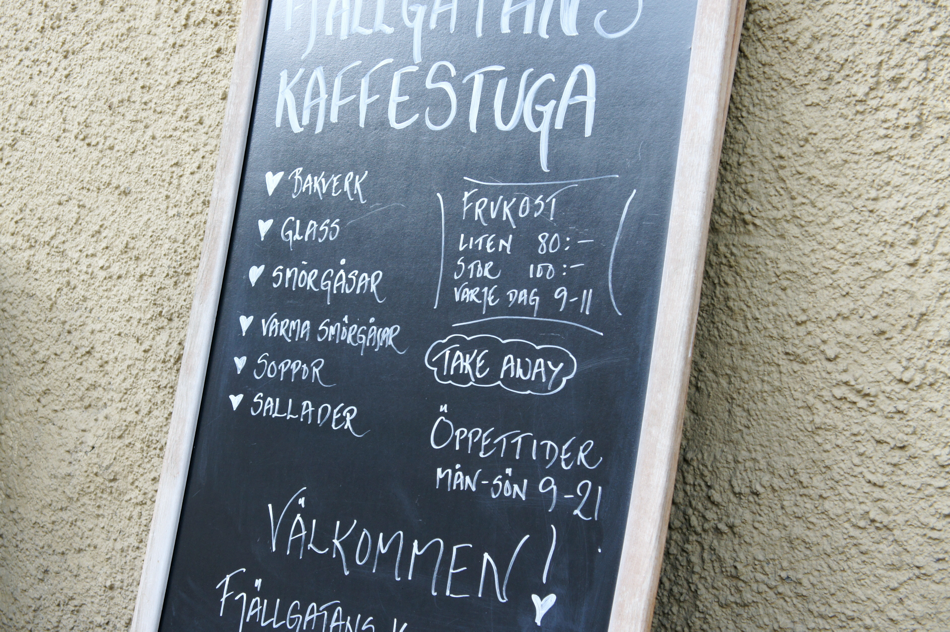 FJÄLLGATANS
KAFFESTUGA
♥ BAKVERK
♥ GLASS
♥ SMÖRGÅSAR
♥ VARMA SMÖRGÅSAR
♥ SOPPOR
♥ SALLADER
FRUKOST
LITEN 80:-
STOR 100:-
VARJE DAG 9-11
TAKE AWAY
ÖPPETTIDER
MÅN-SÖN 9-21
VÄLKOMMEN!
FJÄLLGATANS K